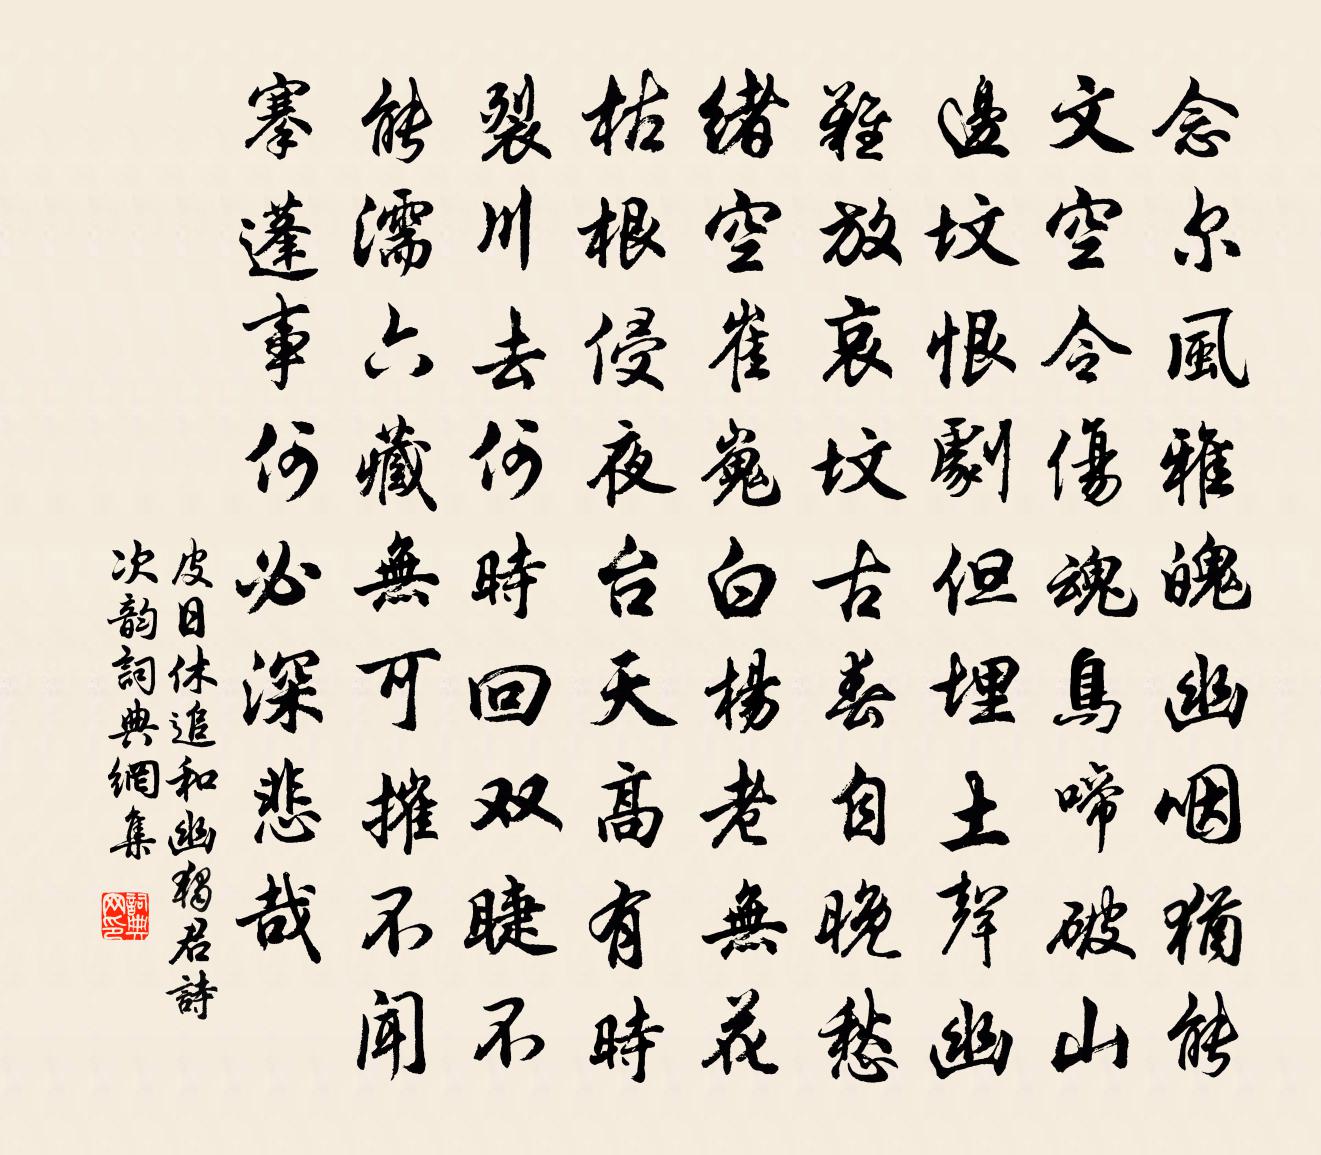 念尔風雅魄幽咽猶能
文空令傷魂鳥啼破山
邊坟恨劇但埋土聲幽
難放哀坟古春自晚愁
緒空崔嵬白楊老無花
枯根侵夜台天高有時
裂川去何時回双睫不
能濡六藏無可摧不闻
搴蓬事何必深悲哉
皮日休追和幽獨君詩
次韵詞典網集
詞典网印